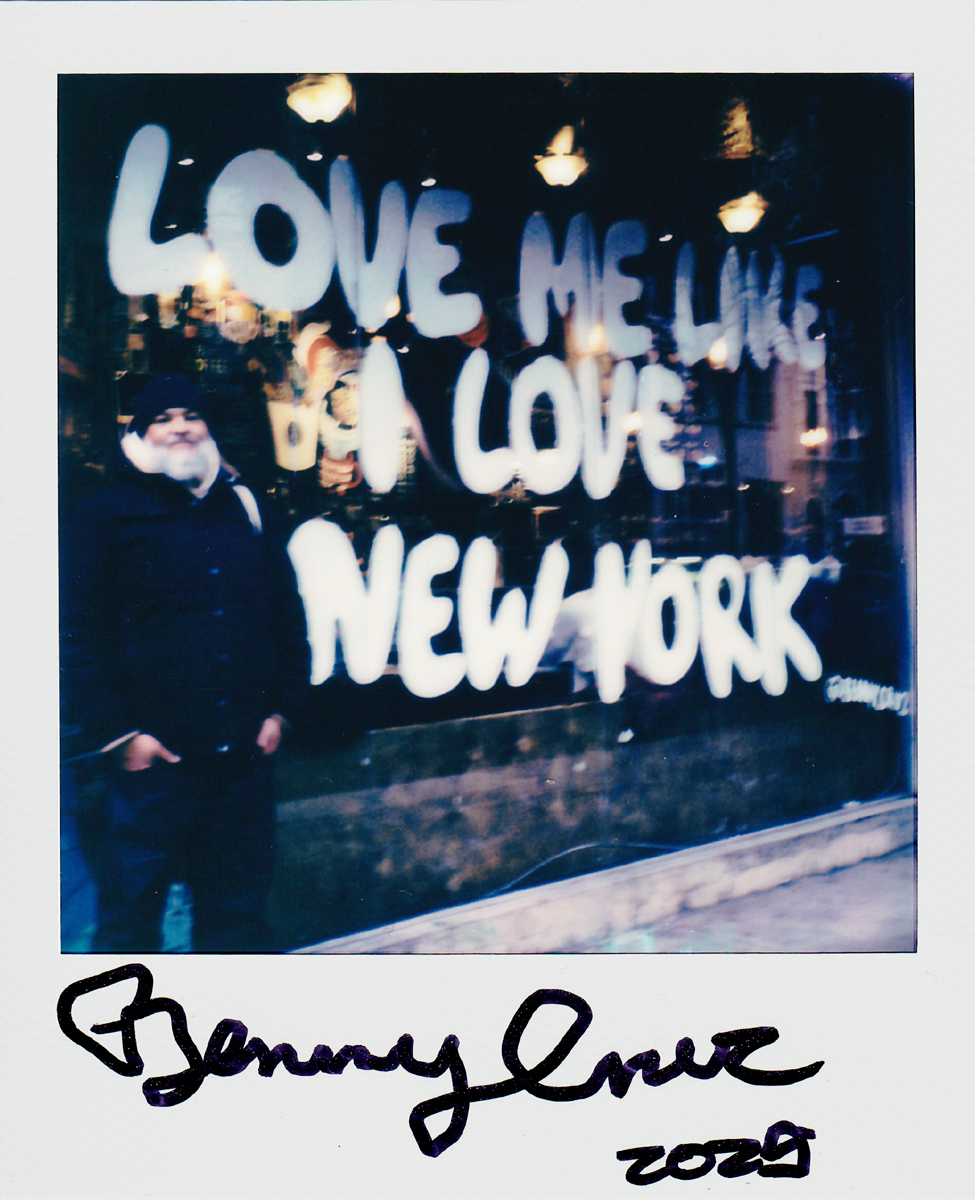 LOVE ME LIKE
I LOVE
NEW YORK
Benny Cruz
2029